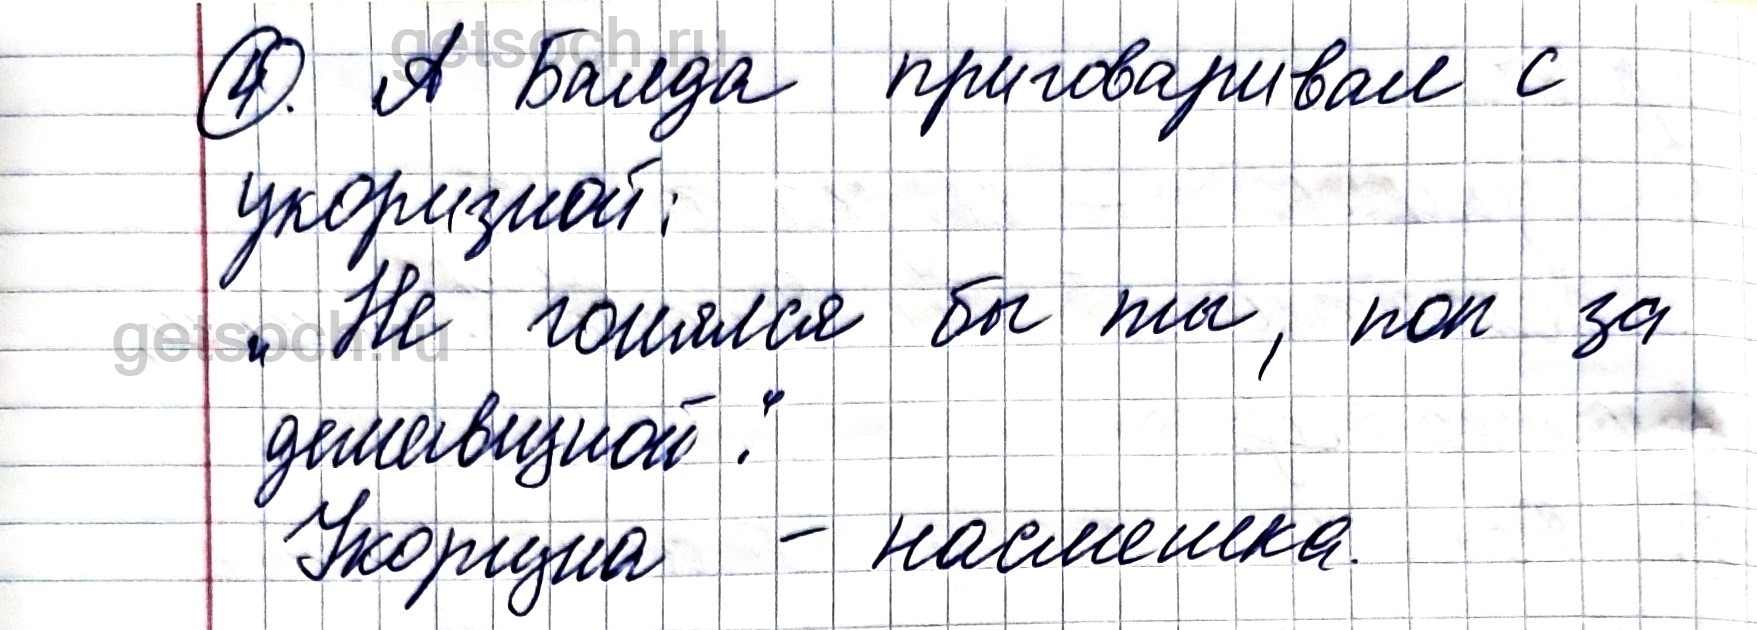 ④. А Балда приговаривал с
укоризной:
„Не гонялся бы ты, поп за
дешевизной".
Укоризна - насмешка.
getsoch.ru
getsoch.ru